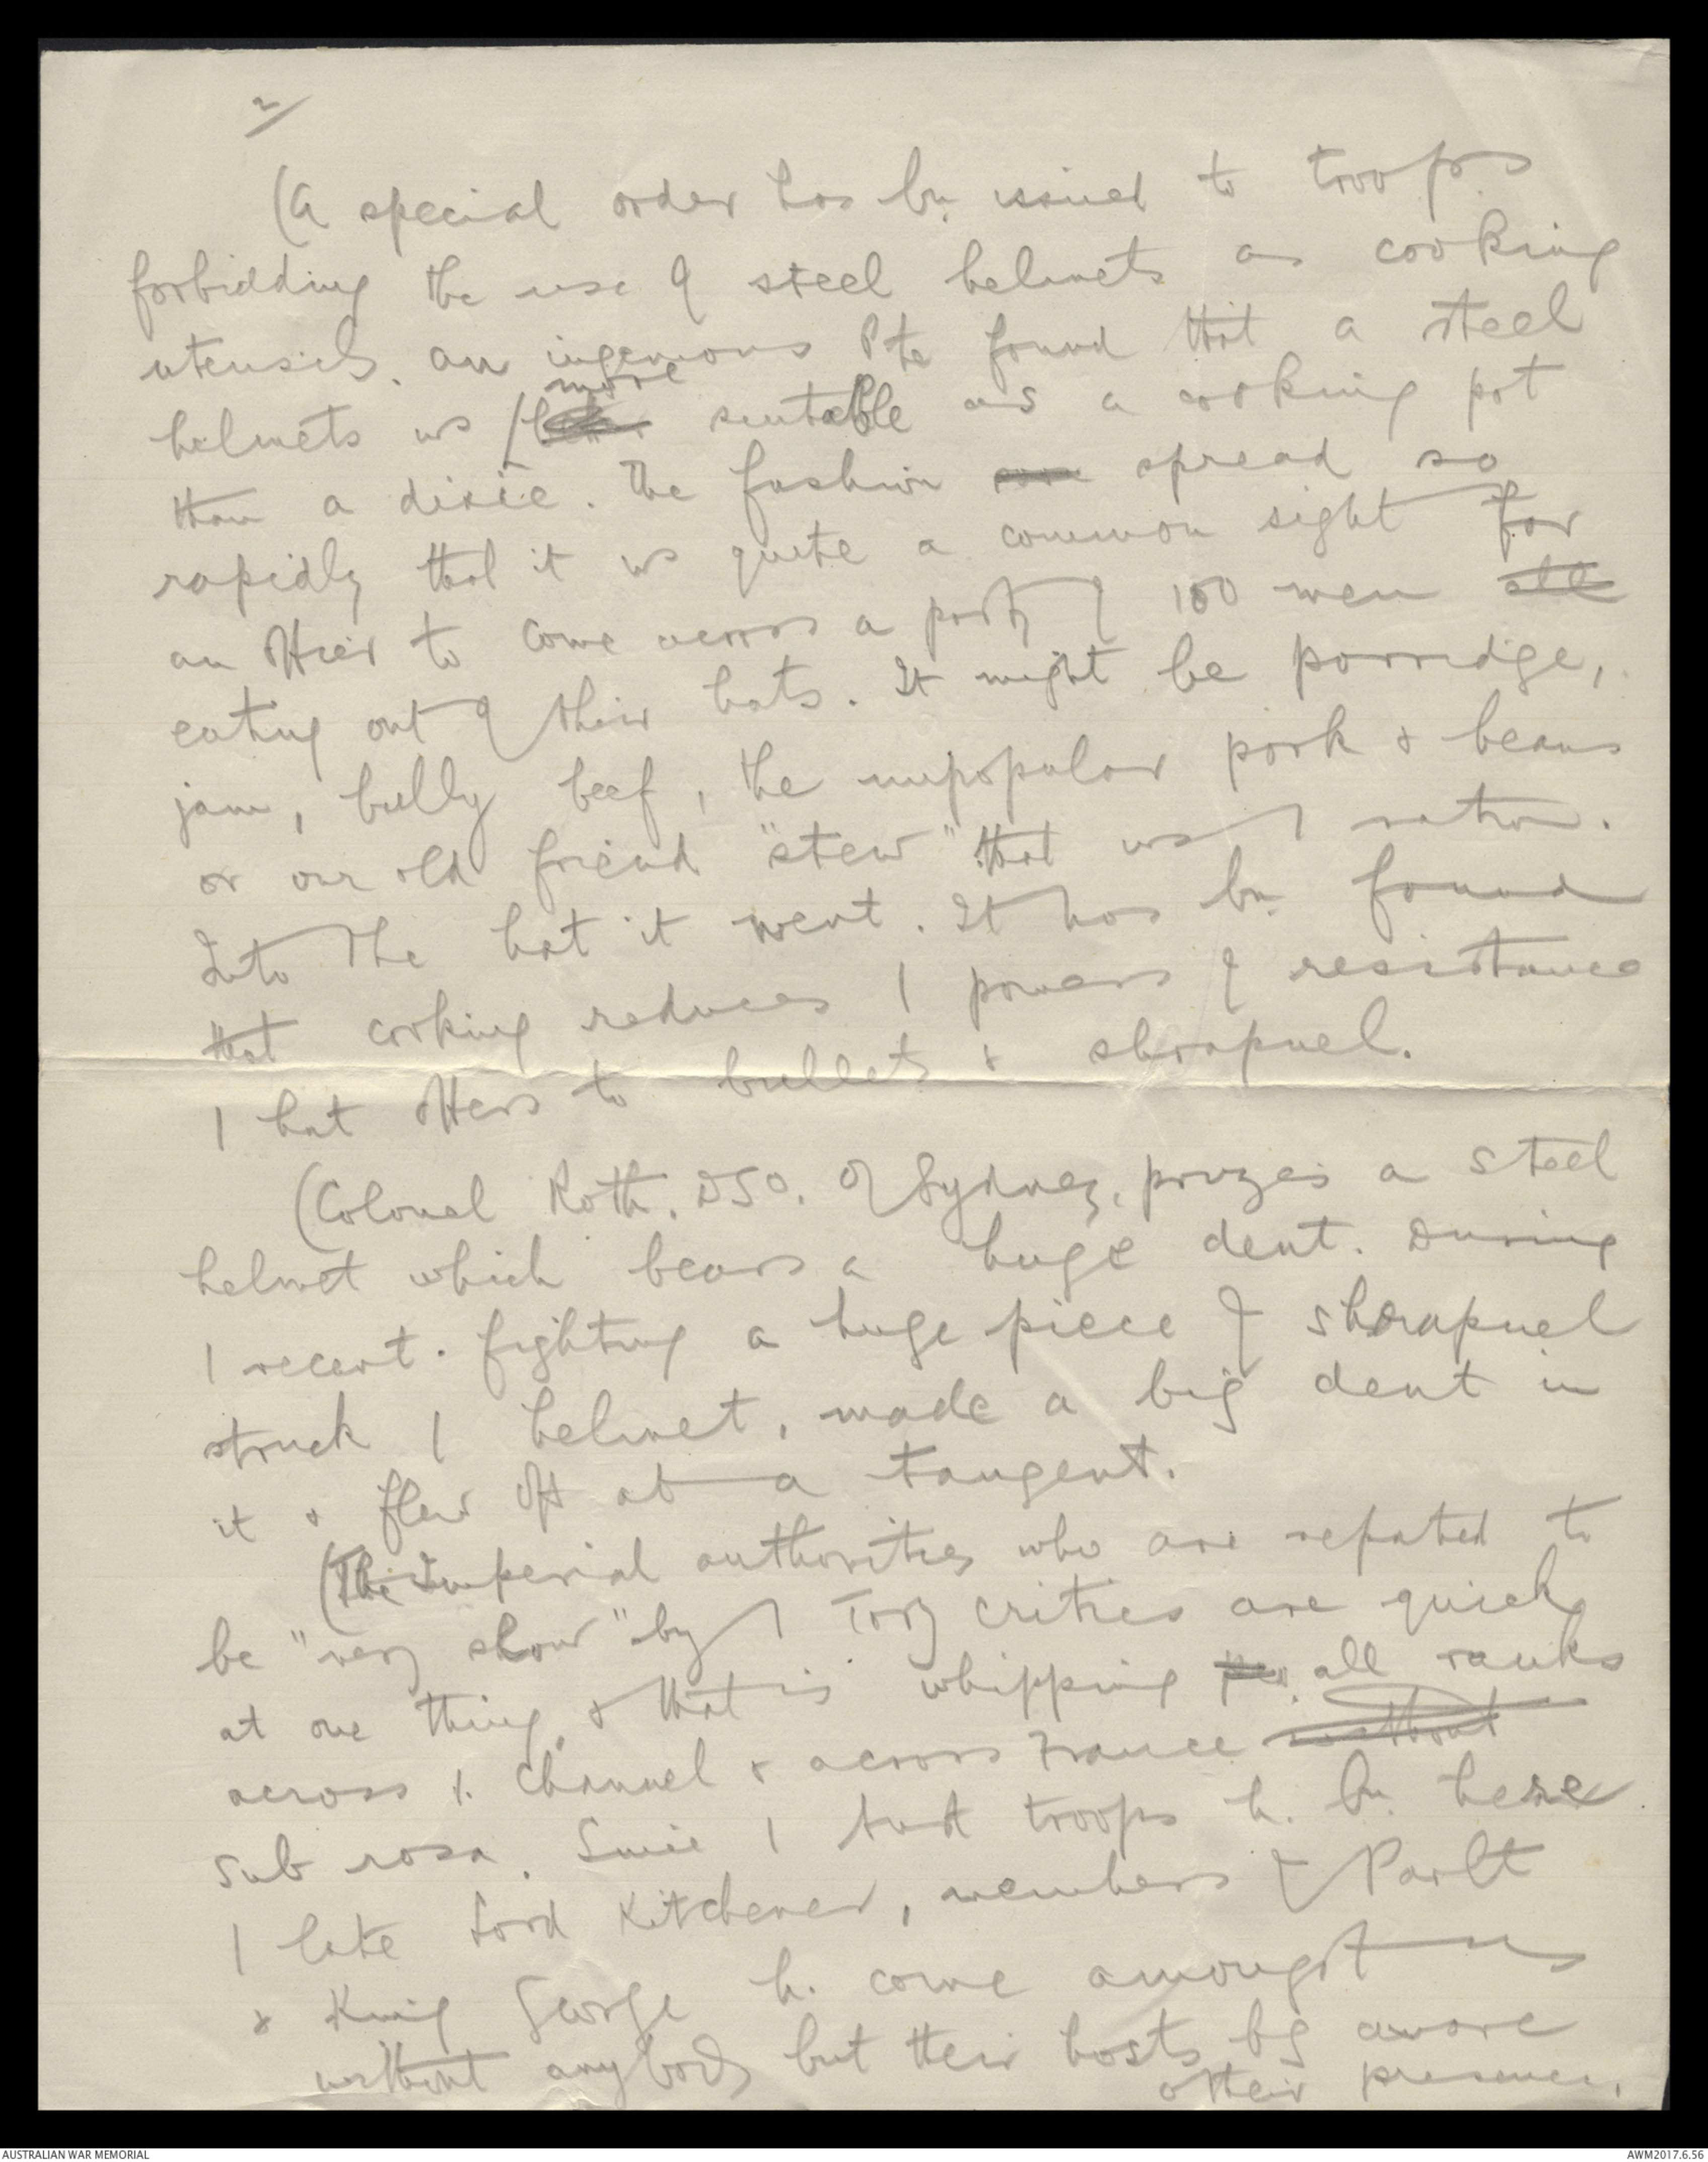 2/
(A special order has bn issued to troops
forbidding the use of steel helmets as cooking
utensils. an ingenious Pte found tht a steel
more
helmets ws suitable as a cooking pot
than a dixie. The fashion spread so
rapidly that it ws quite a common sight for
an officer to come across a party of 100 men all
eating out of their hats. It might be porridge,
jam, bully beef, the unpopular pork & beans
or our old friend "stew" that ws / ration.
Into the hat it went. It has bn found
that cooking reduces / powers of resistance
/ hat offers to bullets & shrapnel.
(Colonel Roth. DSO. of Sydney, prizes a steel
helmet which bears a huge dent. During
/ recent. fighting a huge piece of shrapnel
struck / helmet, made a big dent in
it & flew off at a tangent.
(The Imperial authorities who are reputed to
be "very slow" by / Tory critics are quick
at one thing, & that is whipping all ranks
across /. Channel & across France without
sub rosa. Since / Aust troops h. bn here
/ late Lord Kitchener, members of Parlt
& King George h. come amongst us
without anybody but their hosts bg aware
of their presence.
AUSTRALIAN WAR MEMORIAL
AWM2017.6.56